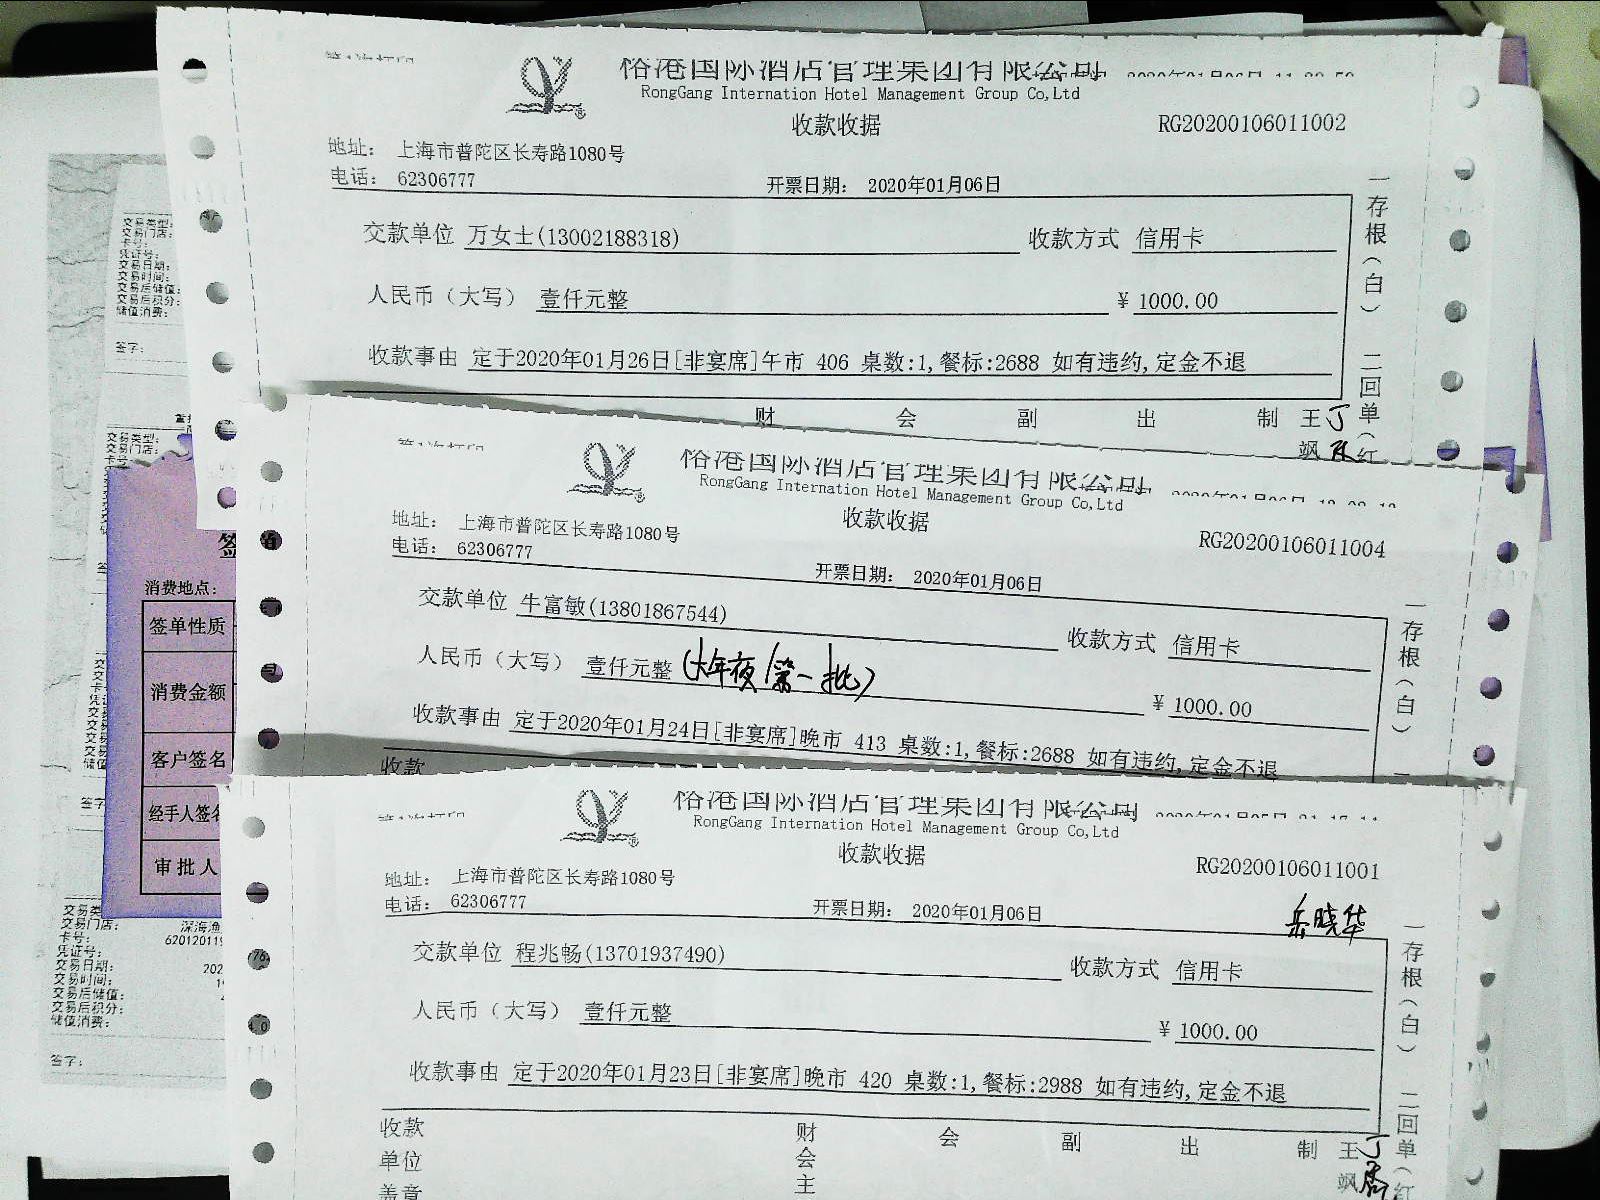 裕港国际酒店管理集团有限公司
RongGang Internation Hotel Management Group Co,Ltd
收款收据
RG20200106011002
地址： 上海市普陀区长寿路1080号
电话： 62306777
开票日期： 2020年01月06日
交款单位 万女士(13002188318)
收款方式 信用卡
人民币（大写） 壹仟元整
¥ 1000.00
收款事由 定于2020年01月26日[非宴席]午市 406 桌数:1,餐标:2688 如有违约,定金不退
一存根（白）
二回单（红
财 会 副 出 制 王
飒
裕港国际酒店管理集团有限公司
RongGang Internation Hotel Management Group Co,Ltd
收款收据
RG20200106011004
地址： 上海市普陀区长寿路1080号
电话： 62306777
开票日期： 2020年01月06日
交款单位 牛富敏(13801867544)
收款方式 信用卡
人民币（大写） 壹仟元整 (大年夜/第一批)
¥ 1000.00
收款事由 定于2020年01月24日[非宴席]晚市 413 桌数:1,餐标:2688 如有违约,定金不退
一存根（白）
收款
裕港国际酒店管理集团有限公司
RongGang Internation Hotel Management Group Co,Ltd
收款收据
RG20200106011001
地址： 上海市普陀区长寿路1080号
电话： 62306777
开票日期： 2020年01月06日
岳晓华
交款单位 程兆畅(13701937490)
收款方式 信用卡
人民币（大写） 壹仟元整
¥ 1000.00
收款事由 定于2020年01月23日[非宴席]晚市 420 桌数:1,餐标:2988 如有违约,定金不退
一存根（白）
二回单（红
收款 财 会 副 出 制 王
单位 会 飒
盖章 主
交易类型：
交易门店：
卡号：
凭证号：
交易日期：
交易时间：
交易后储值：
交易后积分：
储值消费：
签字：
交易类型：
交易门店：
消费地点：
签单性质
消费金额
客户签名
经手人签名
审批人
交易门店： 深海渔
卡号： 620120119
凭证号：
交易日期： 202
交易时间：
交易后储值：
交易后积分：
储值消费：
签字：